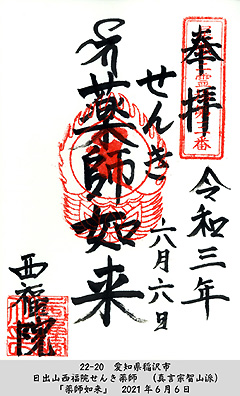 奉拝
令和三年
六月六日
せんき
薬師如来
西福院
22-20 愛知県稲沢市
日出山西福院せんき薬師 (真言宗智山派)
「薬師如来」 2021年6月6日